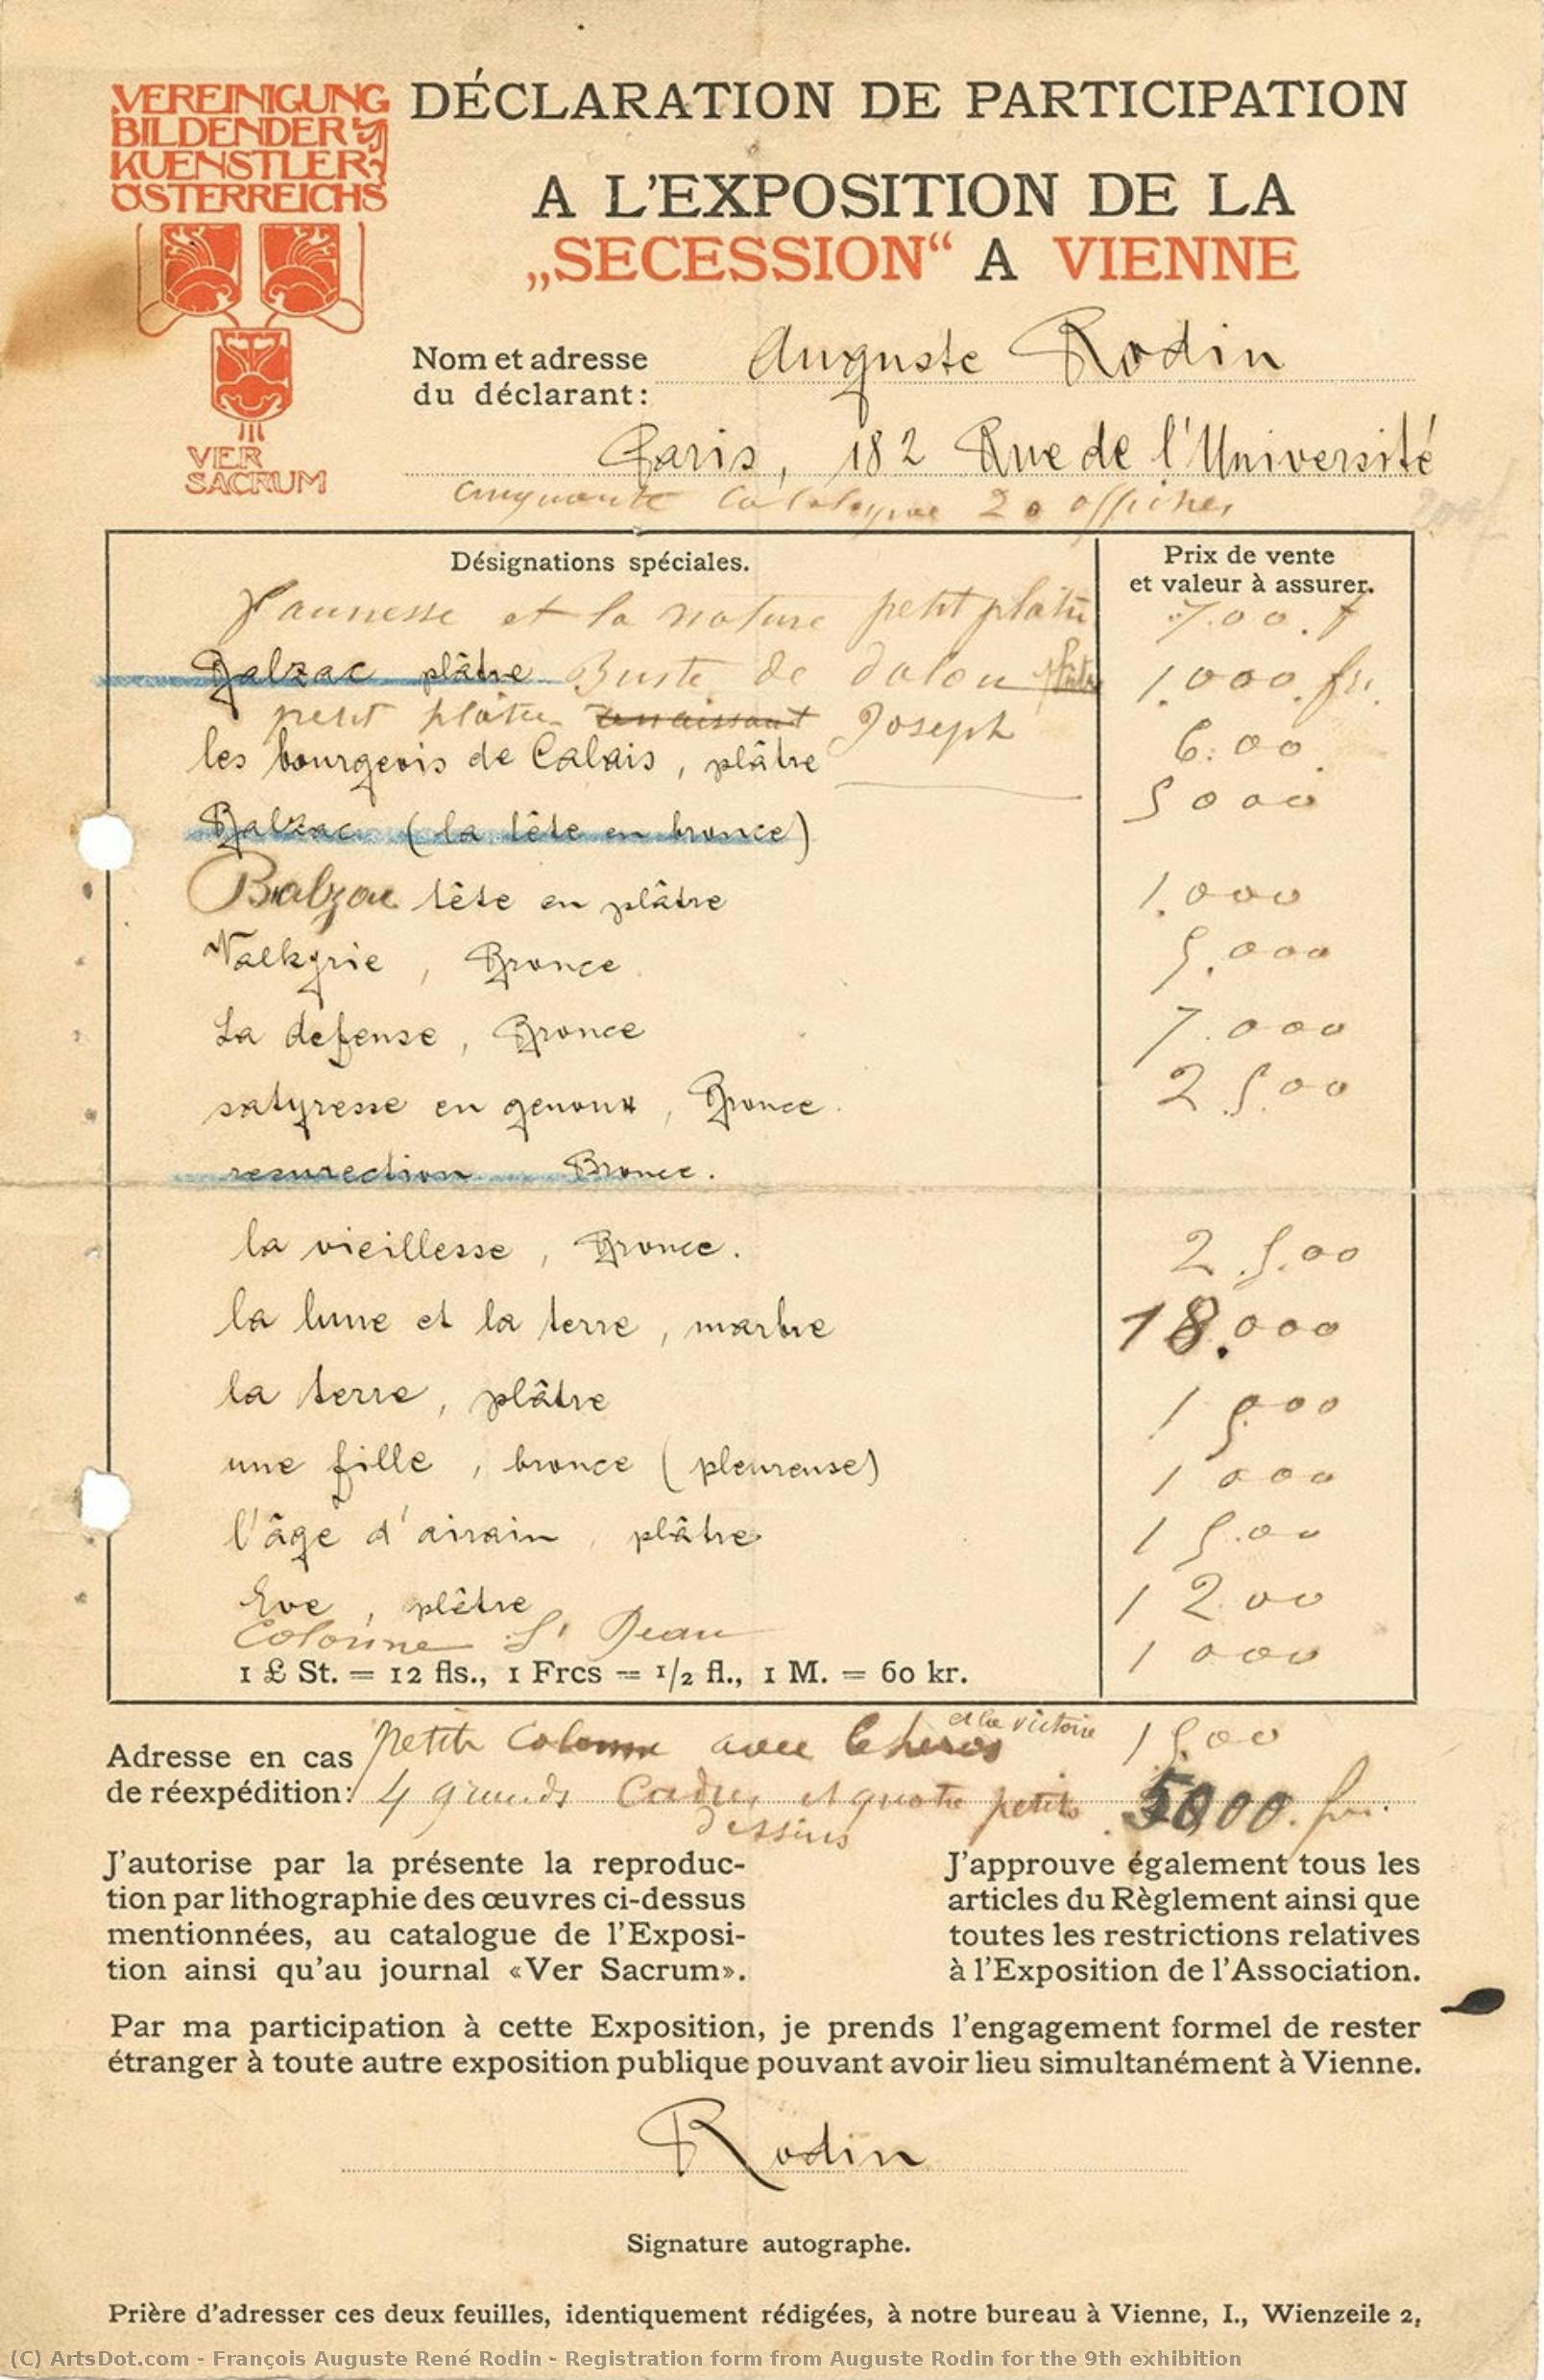 VEREINIGUNG
BILDENDER
KUENSTLER
ÖSTERREICHS
VER
SACRUM
DÉCLARATION DE PARTICIPATION
A L'EXPOSITION DE LA
„SECESSION“ A VIENNE
Nom et adresse
du déclarant:
Auguste Rodin
Paris, 182 Rue de l'Université
cinquante Catalogue 20 affiches
Désignations spéciales.
Prix de vente
et valeur à assurer.
et la nature petit plâtre 700. f
Balzac plâtre Buste de dalou plâtre 1.000. frs.
petit plâtre Joseph 6.00
les bourgeois de Calais, plâtre 5000
Balzac (la tête en bronce)
Balzac tête en plâtre 1.000
Valkyrie, Bronce 5.000
La defense, Bronce 7.000
satyresse en genoux, Bronce. 2.5.00
resurection Bronce.
la vieillesse, Bronce. 2.5.00
la lune et la terre, marbre 18.000
la terre, plâtre 1500
une fille, bronce (pleureuse) 1000
l'âge d'airain, plâtre 15.00
Eve, plêtre 1200
Colonne St Jean 1000
1 £ St. = 12 fls., 1 Frcs = 1/2 fl., 1 M. = 60 kr.
Adresse en cas
de réexpédition:
petite Colonne avec le heros et la victoire 1500
4 grands Cadres et quatre petits 5000. frs.
dessins
J'autorise par la présente la reproduc-
tion par lithographie des œuvres ci-dessus
mentionnées, au catalogue de l'Exposi-
tion ainsi qu'au journal «Ver Sacrum».
J'approuve également tous les
articles du Règlement ainsi que
toutes les restrictions relatives
à l'Exposition de l'Association.
Par ma participation à cette Exposition, je prends l'engagement formel de rester
étranger à toute autre exposition publique pouvant avoir lieu simultanément à Vienne.
Rodin
Signature autographe.
Prière d'adresser ces deux feuilles, identiquement rédigées, à notre bureau à Vienne, I., Wienzeile 2,
(C) ArtsDot.com - François Auguste René Rodin - Registration form from Auguste Rodin for the 9th exhibition